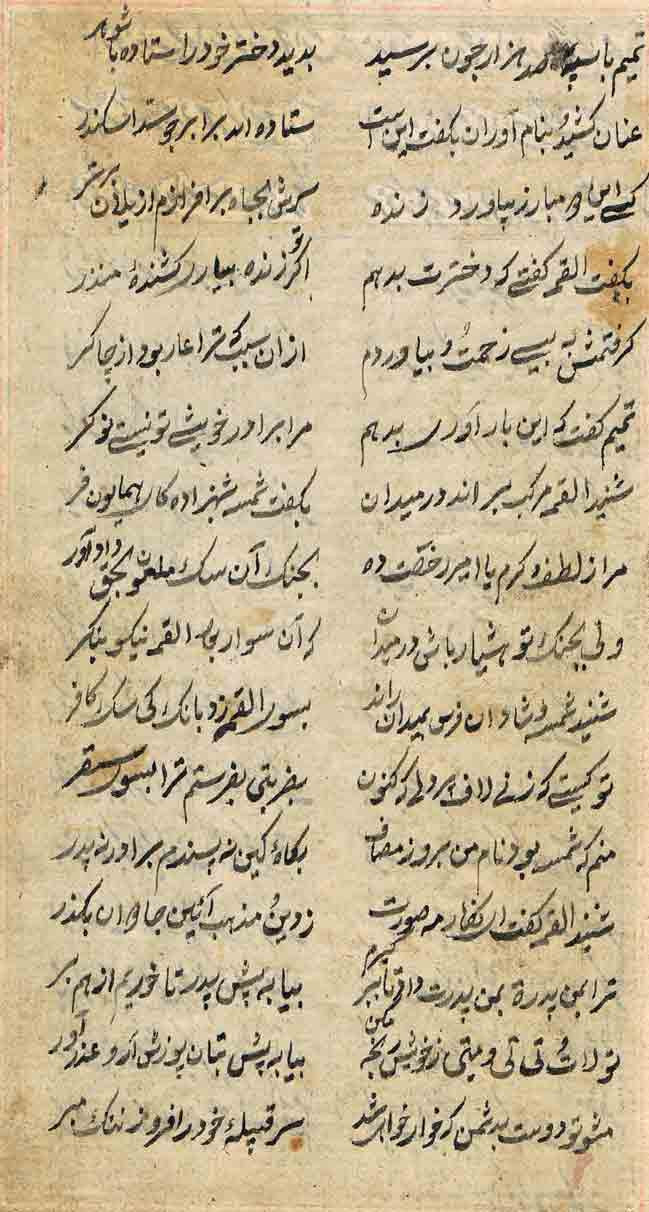 تمیم با سپه صد هزار چون برسید بدید دختر خود را ستاده با شوهر
عنان کشید و بنام آوران بکفت این است ستاده اند برابر چو سد اسکندر
کسی این مبارز بیاورد زنده سرش بجاه برافرازم از یلان برتر
بکفت القمر کفتی که دخترت بدهم اکر تو زنده بیاری کشندۀ منذر
کرفتمش به بسی زحمت و بیاوردم از ان سبب که ترا عار بود از چاکر
تمیم کفت که این بار آوری بدهم مرا برادر خویشی تو نیستی نوکر
شنید القمه مرکب براند در میدان بکفت شمسه شهزاده کای همایون فر
مرا ز لطف و کرم یا امیر رخصت ده بجنک آن سک ملعون بحق داداور
ولی بجنک تو هشیار باش در میدان که آن سوار بود القمه نیکو بنکر
شنید شمسه و شادان فرس بمیدان راند بسوی القمه زد بانک کی سک کافر
تو کیستی که زنی لاف پردلی که کنون بضربتی بفرستم ترا بسوی سقر
منم که شمسه بود نام من بروز مصاف بکاه کین نه پسندم برادر نه پدر
شنید القمه کفت ای نکار مه صورت ز دین و مذهب آئین جاودان بکذر
ترا بمن پدرت بمن پدرت داد تا بیا به پیش پدر تا خوریم از هم بر
تو لات و تی تی و میتی ز خویش رنجه مکن بیا به پیش بتان پوزش آر و عذر آور
مشو تو دوست بدشمن که خوار خواهی شد سر قبیلۀ خود را فرو ز ننک مبر